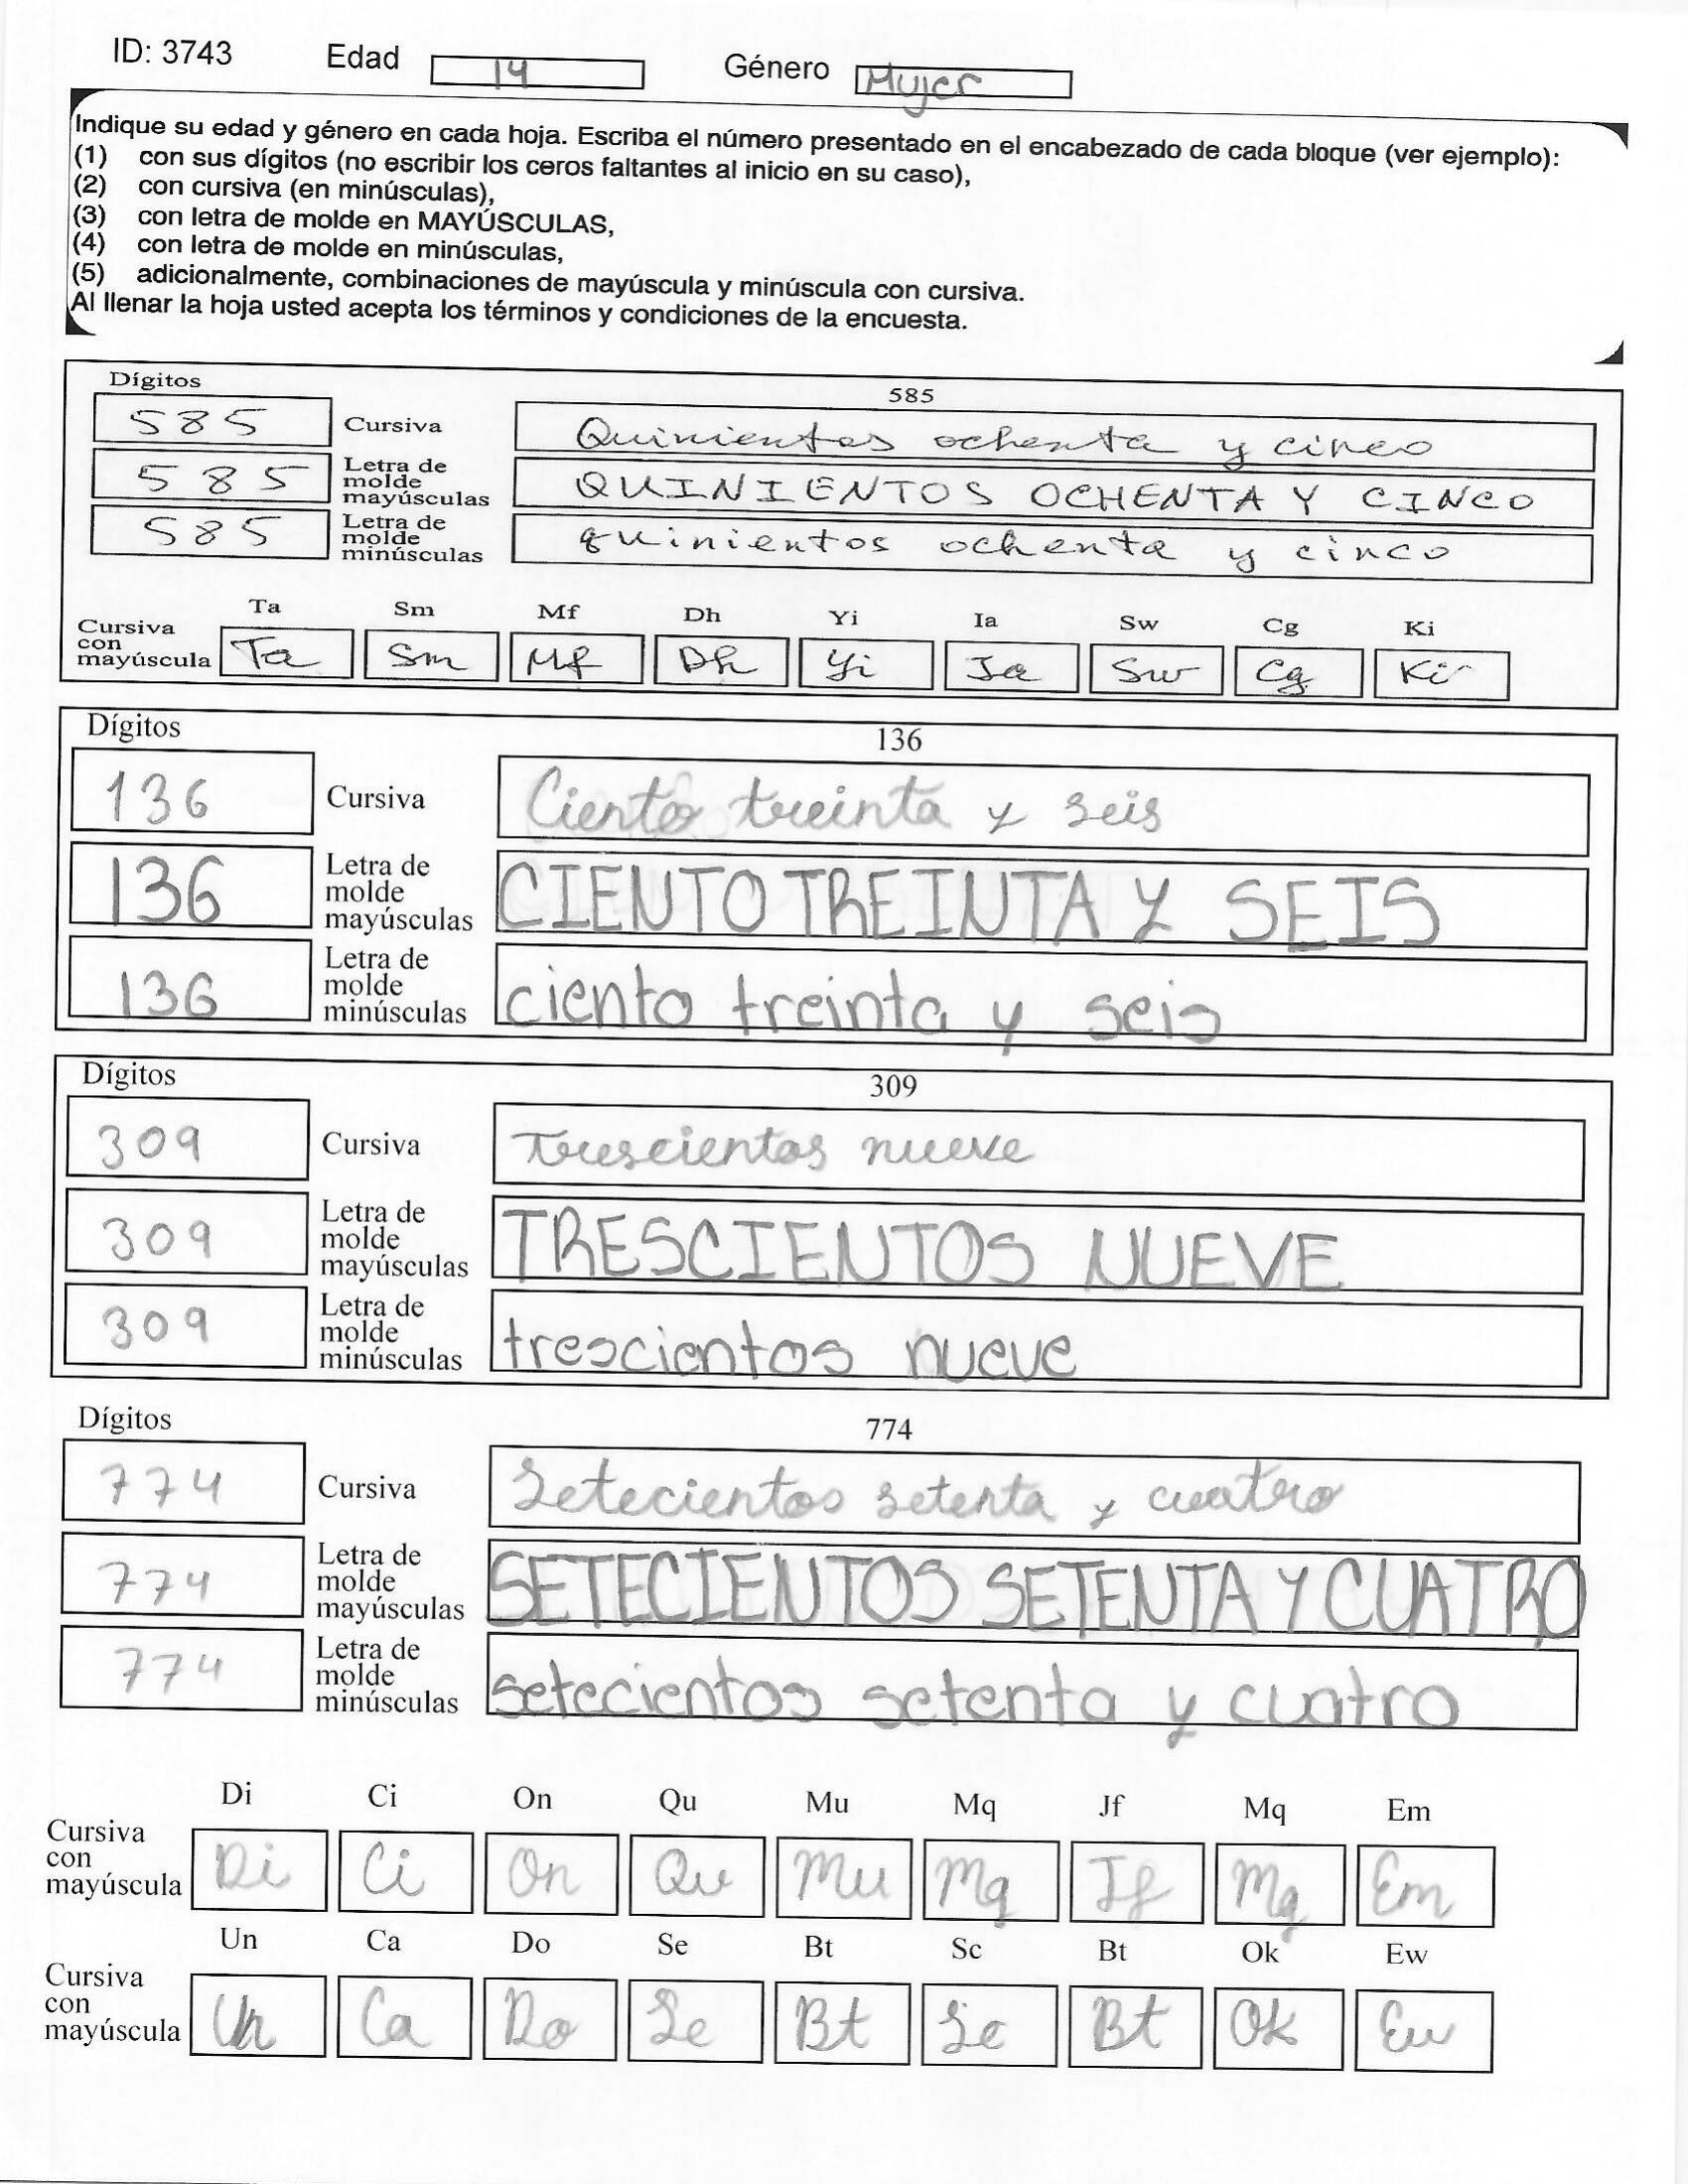 ID: 3743 Edad 14 Género Mujer
Indique su edad y género en cada hoja. Escriba el número presentado en el encabezado de cada bloque (ver ejemplo):
(1) con sus dígitos (no escribir los ceros faltantes al inicio en su caso),
(2) con cursiva (en minúsculas),
(3) con letra de molde en MAYÚSCULAS,
(4) con letra de molde en minúsculas,
(5) adicionalmente, combinaciones de mayúscula y minúscula con cursiva.
Al llenar la hoja usted acepta los términos y condiciones de la encuesta.
Dígitos 585
585 Cursiva Quinientos ochenta y cinco
585 Letra de molde mayúsculas QUINIENTOS OCHENTA Y CINCO
585 Letra de molde minúsculas quinientos ochenta y cinco
Ta Sm Mf Dh Yi Ia Sw Cg Ki
Cursiva con mayúscula Ta Sm Mf Dh Yi Ia Sw Cg Ki
Dígitos 136
136 Cursiva Ciento treinta y seis
136 Letra de molde mayúsculas CIENTO TREINTA Y SEIS
136 Letra de molde minúsculas ciento treinta y seis
Dígitos 309
309 Cursiva Trescientos nueve
309 Letra de molde mayúsculas TRESCIENTOS NUEVE
309 Letra de molde minúsculas trescientos nueve
Dígitos 774
774 Cursiva Setecientos setenta y cuatro
774 Letra de molde mayúsculas SETECIENTOS SETENTA Y CUATRO
774 Letra de molde minúsculas setecientos setenta y cuatro
Di Ci On Qu Mu Mq Jf Mq Em
Cursiva con mayúscula Di Ci On Qu Mu Mq Jf Mq Em
Un Ca Do Se Bt Sc Bt Ok Ew
Cursiva con mayúscula Un Ca Do Se Bt Sc Bt Ok Ew